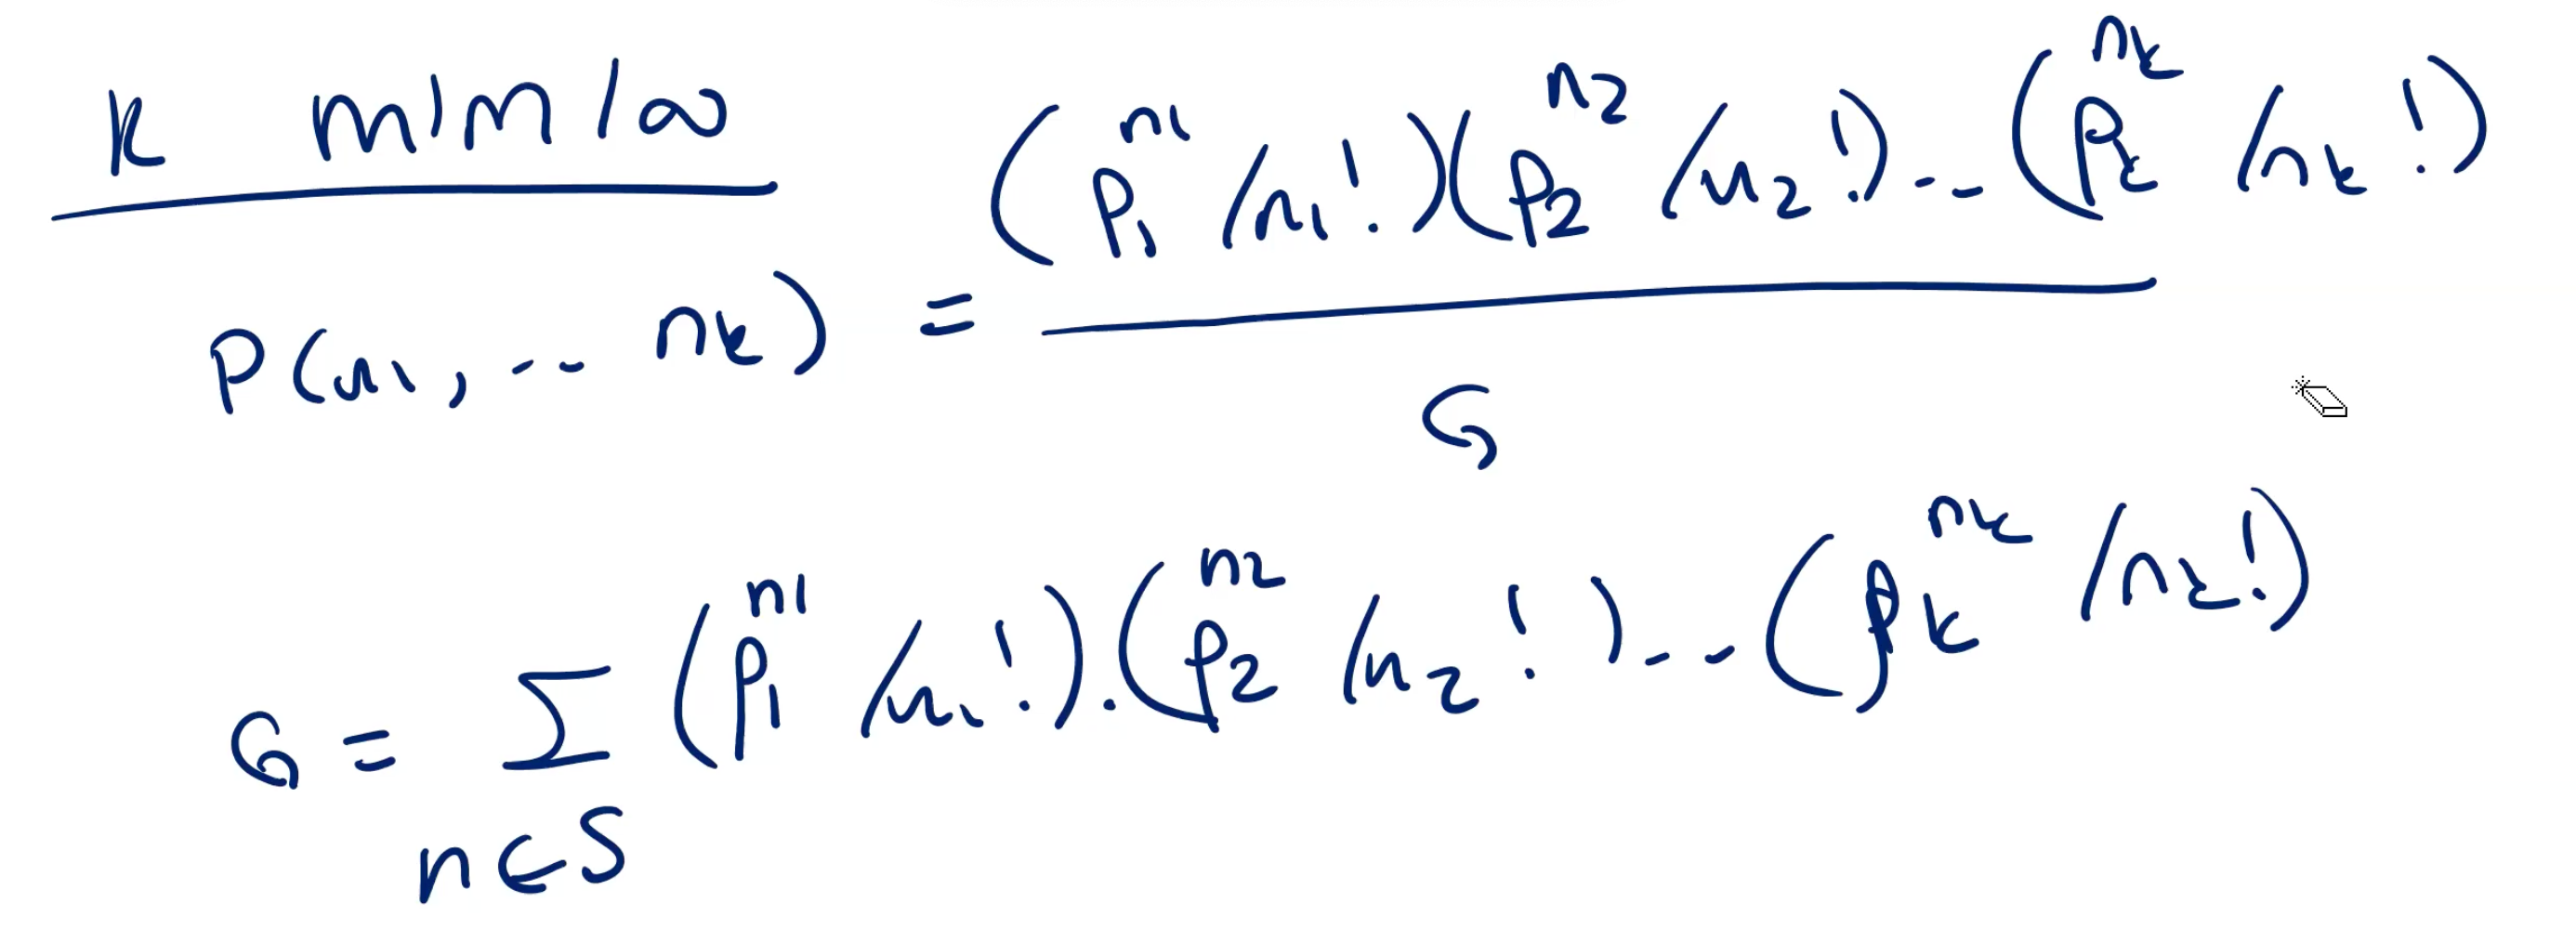 k M/M/∞
P(n1, .. nk) = (ρ1^n1 /n1!)(ρ2^n2 /n2!)--(ρk^nk /nk!) / G
G = Σ n∈S (ρ1^n1 /n1!).(ρ2^n2 /n2!)--(ρk^nk /nk!)